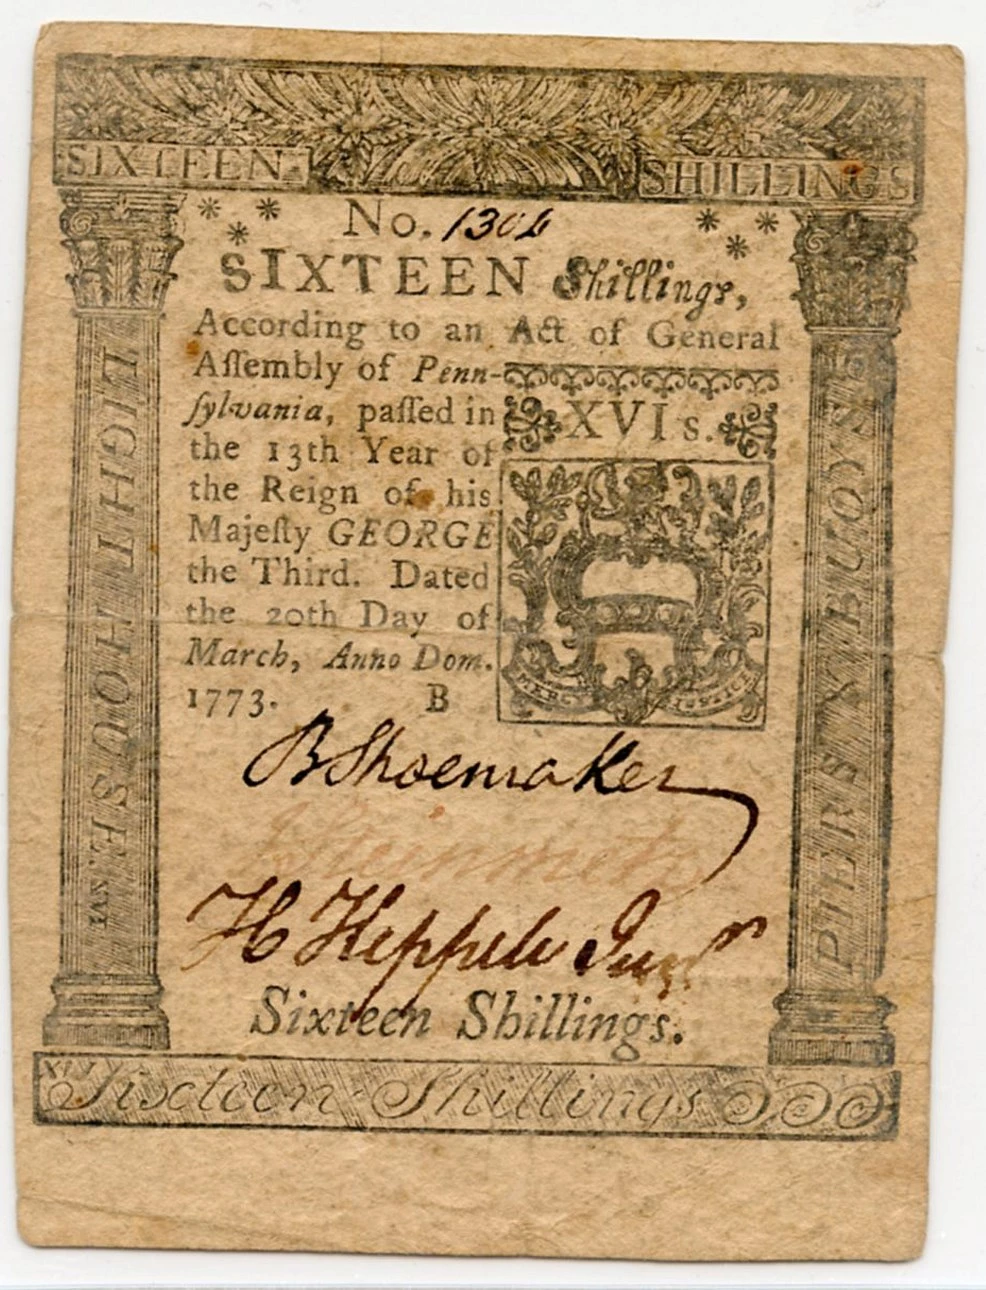 SIXTEEN SHILLINGS
No. 1304
SIXTEEN Shillings,
According to an Act of General
Aſſembly of Penn-
ſylvania, paſſed in
the 13th Year of
the Reign of his
Majeſty GEORGE
the Third. Dated
the 20th Day of
March, Anno Dom.
1773. B
XVI s.
MERCY JUSTICE
LIGHT HOUSE.
XVI
PIERS & BUOYS
B Shoemaker
Steinmetz
H Keppele Junr
Sixteen Shillings.
XVI
Sixteen Shillings